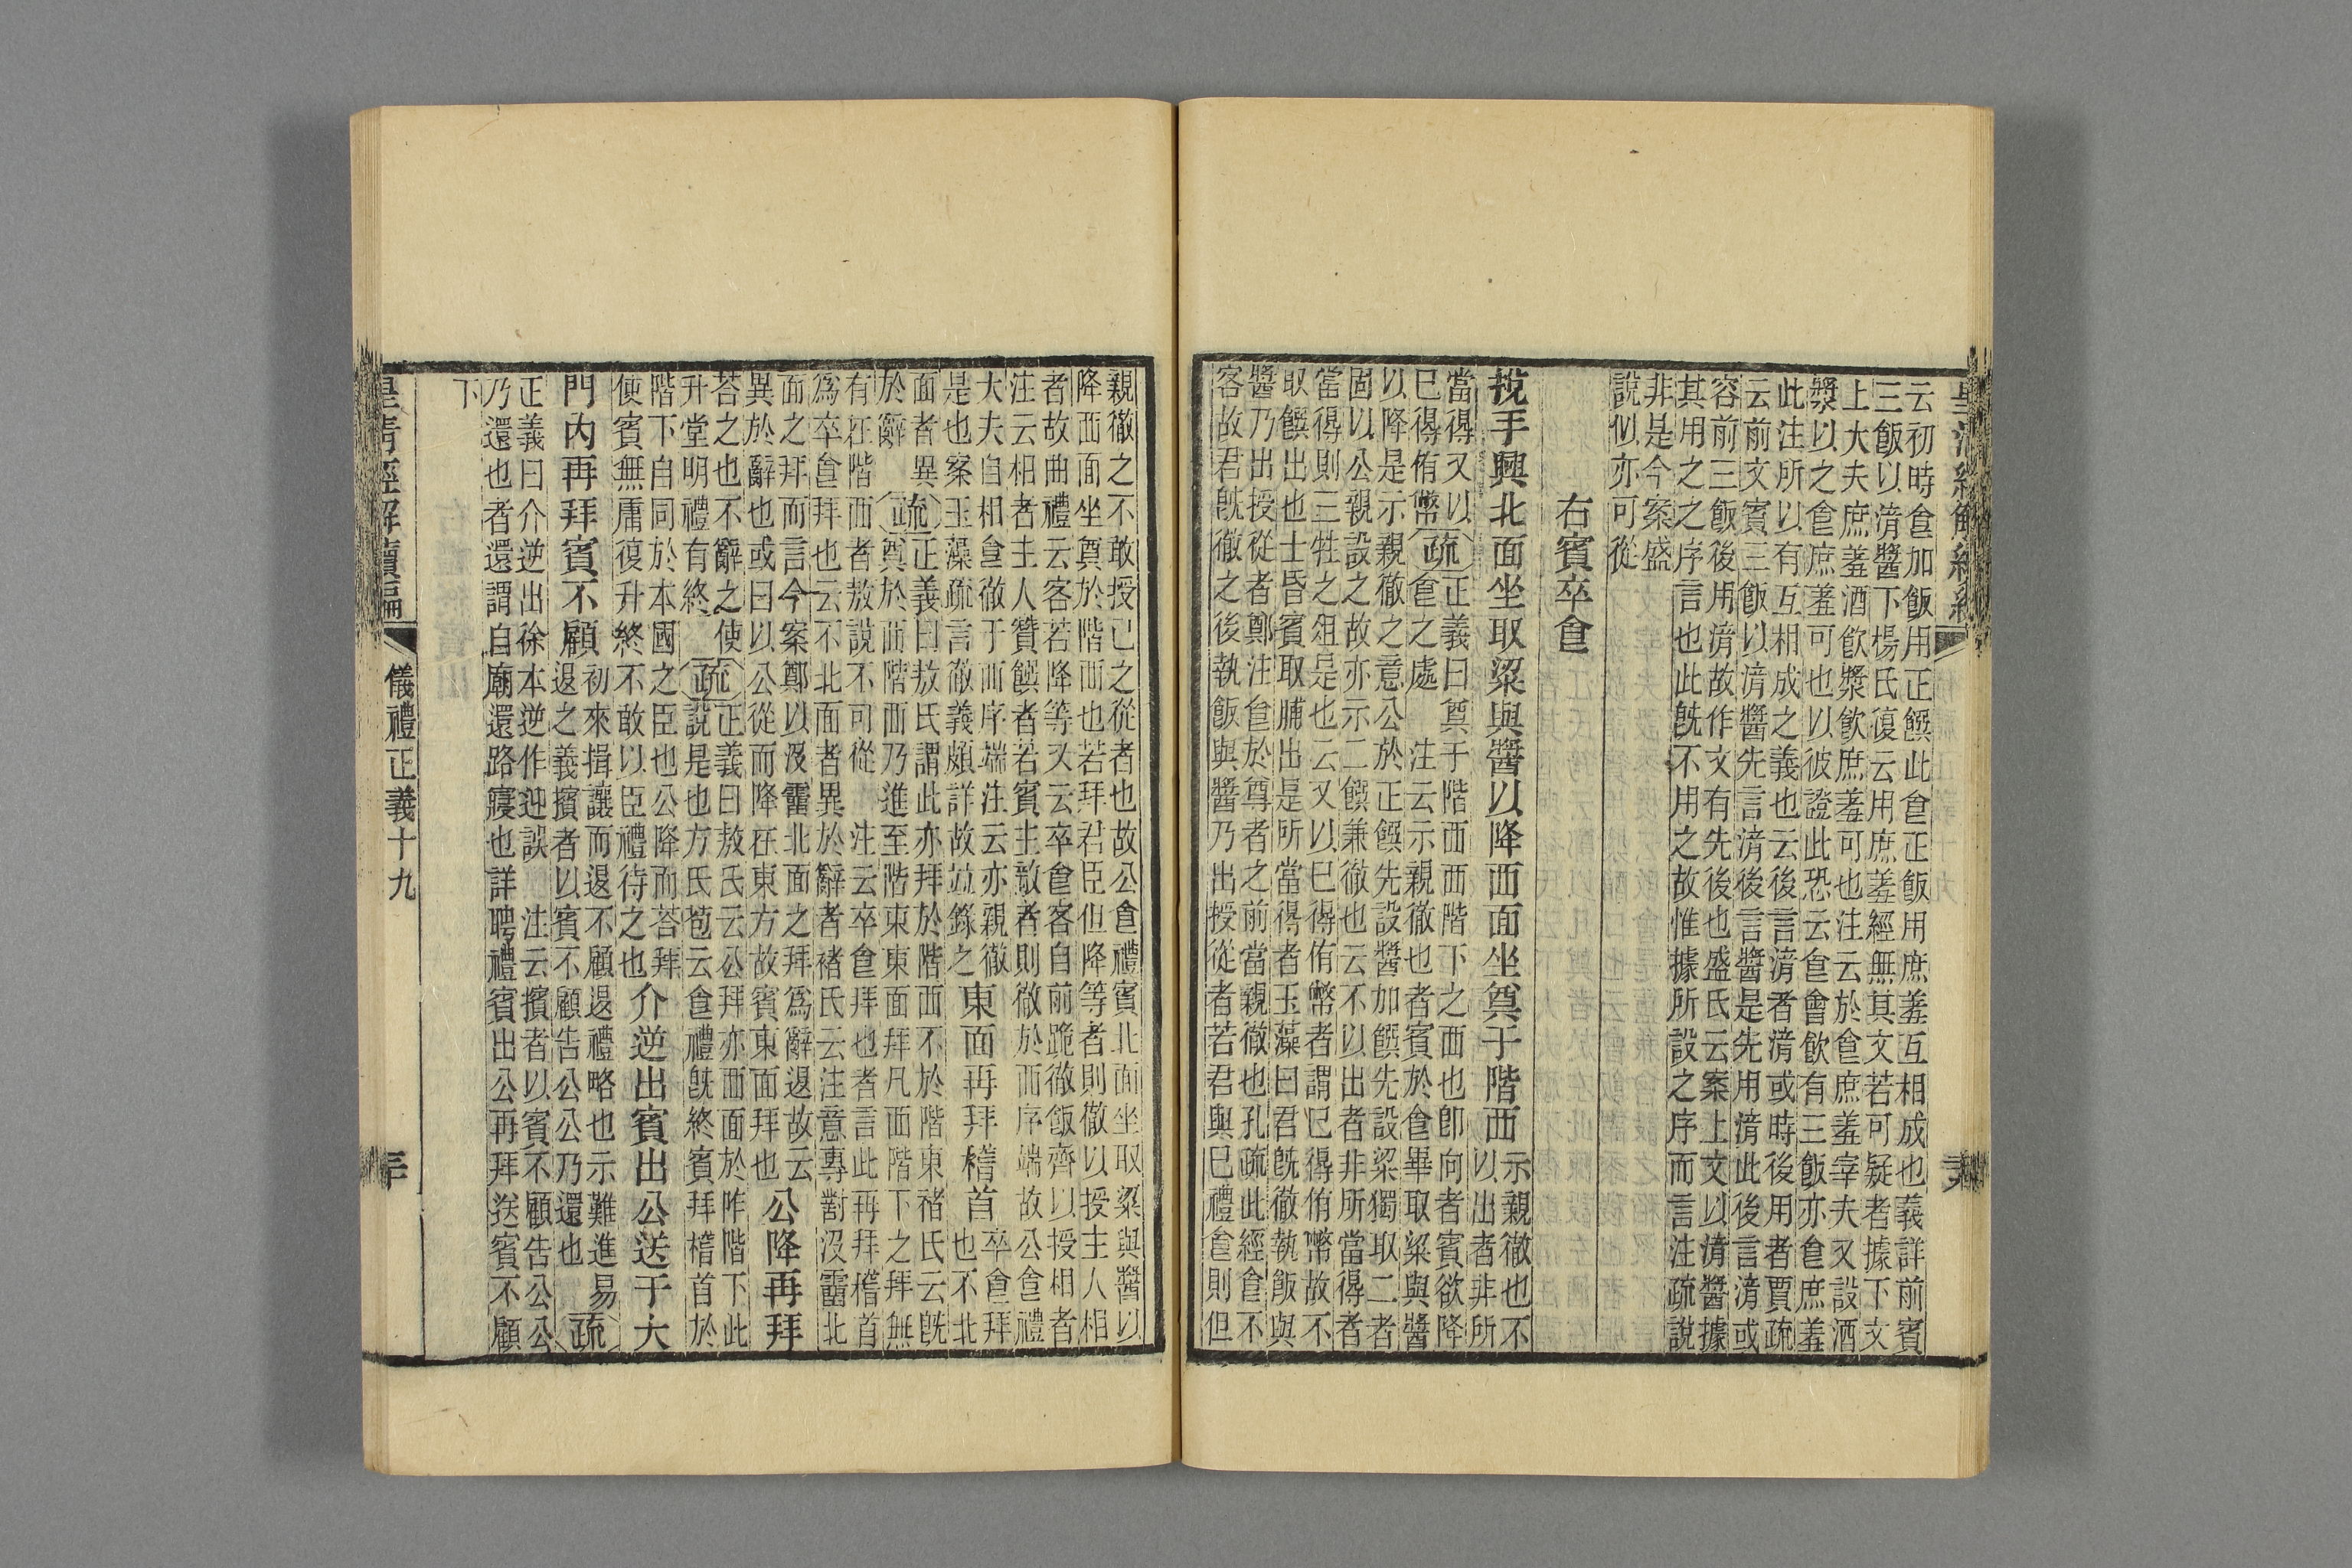 云初時食加飯用正饌此食正飯用庶羞互相成也義詳前賓
三飯以湇醬下楊氏復云用庶羞經無其文若可疑者據下文
上大夫庶羞酒飮漿飮庶羞可也注云於食庶羞宰夫又設酒
漿以之食庶羞可也以彼證此恐云食會飮有三飯亦食庶羞
此注所以有互相成之義也云後言湇者湇或時後用者賈疏
云前文賓三飯以湇醬先言湇後言醬是先用湇此後言湇或
容前三飯後用湇故作文有先後也盛氏云案上文以湇醬據
其用之之序言也此旣不用之故惟據所設之序而言注疏說
非是今案盛
說似亦可從
右賓卒食
挩手興北面坐取粱與醬以降西面坐奠于階西
示親徹也不
以出者非所
當得又以
已得侑幣
疏
正義曰奠于階西西階下之西也卽向者賓欲降
食之處　注云示親徹也者賓於食畢取粱與醬
以降是示親徹之意公於正饌先設醬加饌先設粱獨取二者
固以公親設之故亦示二饌兼徹也云不以出者非所當得者
當得則三牲之俎是也云又以已得侑幣者謂已得侑幣故不
取饌出也士昏賓取脯出是所當得者玉藻曰君旣徹執飯與
醬乃出授從者鄭注食於尊者之前當親徹也孔疏此經食不
客故君旣徹之後執飯與醬乃出授從者若君與已禮食則但
親徹之不敢授已之從者也故公食禮賓北面坐取粱與醬以
降西面坐奠於階西也若拜君臣但降等者則徹以授主人相
者故曲禮云客若降等又云卒食客自前跪徹飯齊以授相者
注云相者主人贊饌者若賓主敵者則徹於西序端故公食禮
大夫自相食徹于西序端注云亦親徹
是也案玉藻疏言徹義頗詳故竝錄之
東面再拜稽首
卒食拜
也不北
面者異
於辭
疏
正義曰敖氏謂此亦拜於階西不於階東褚氏云旣
奠於西階西乃進至階東東面拜凡西階下之拜無
有在階西者敖說不可從　注云卒食拜也者言此再拜稽首
爲卒食拜也云不北面者異於辭者褚氏云注意專對沒霤北
面之拜而言今案鄭以沒霤北面之拜爲辭退故云
異於辭也或曰以公從而降在東方故賓東面拜也
公降再拜
荅之也不辭之使
升堂明禮有終
疏
正義曰敖氏云公拜亦西面於阼階下此
說是也方氏苞云食禮旣終賓拜稽首於
階下自同於本國之臣也公降而荅拜
使賓無庸復升終不敢以臣禮待之也
介逆出賓出公送于大
門內再拜賓不顧
初來揖讓而退不顧退禮略也示難進易
退之義擯者以賓不顧告公公乃還也
疏
正義曰介逆出徐本逆作迎誤　注云擯者以賓不顧告公公
乃還也者還謂自廟還路寢也詳聘禮賓出公再拜送賓不顧
下
儀禮正義十九